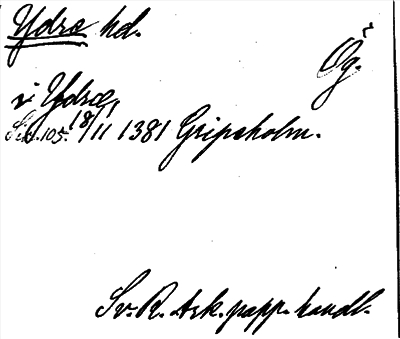 Ydre hd.
Ög.
i Ydre,
18/11 1381 Gripsholm.
Sv. R. Ark. papp. handl.